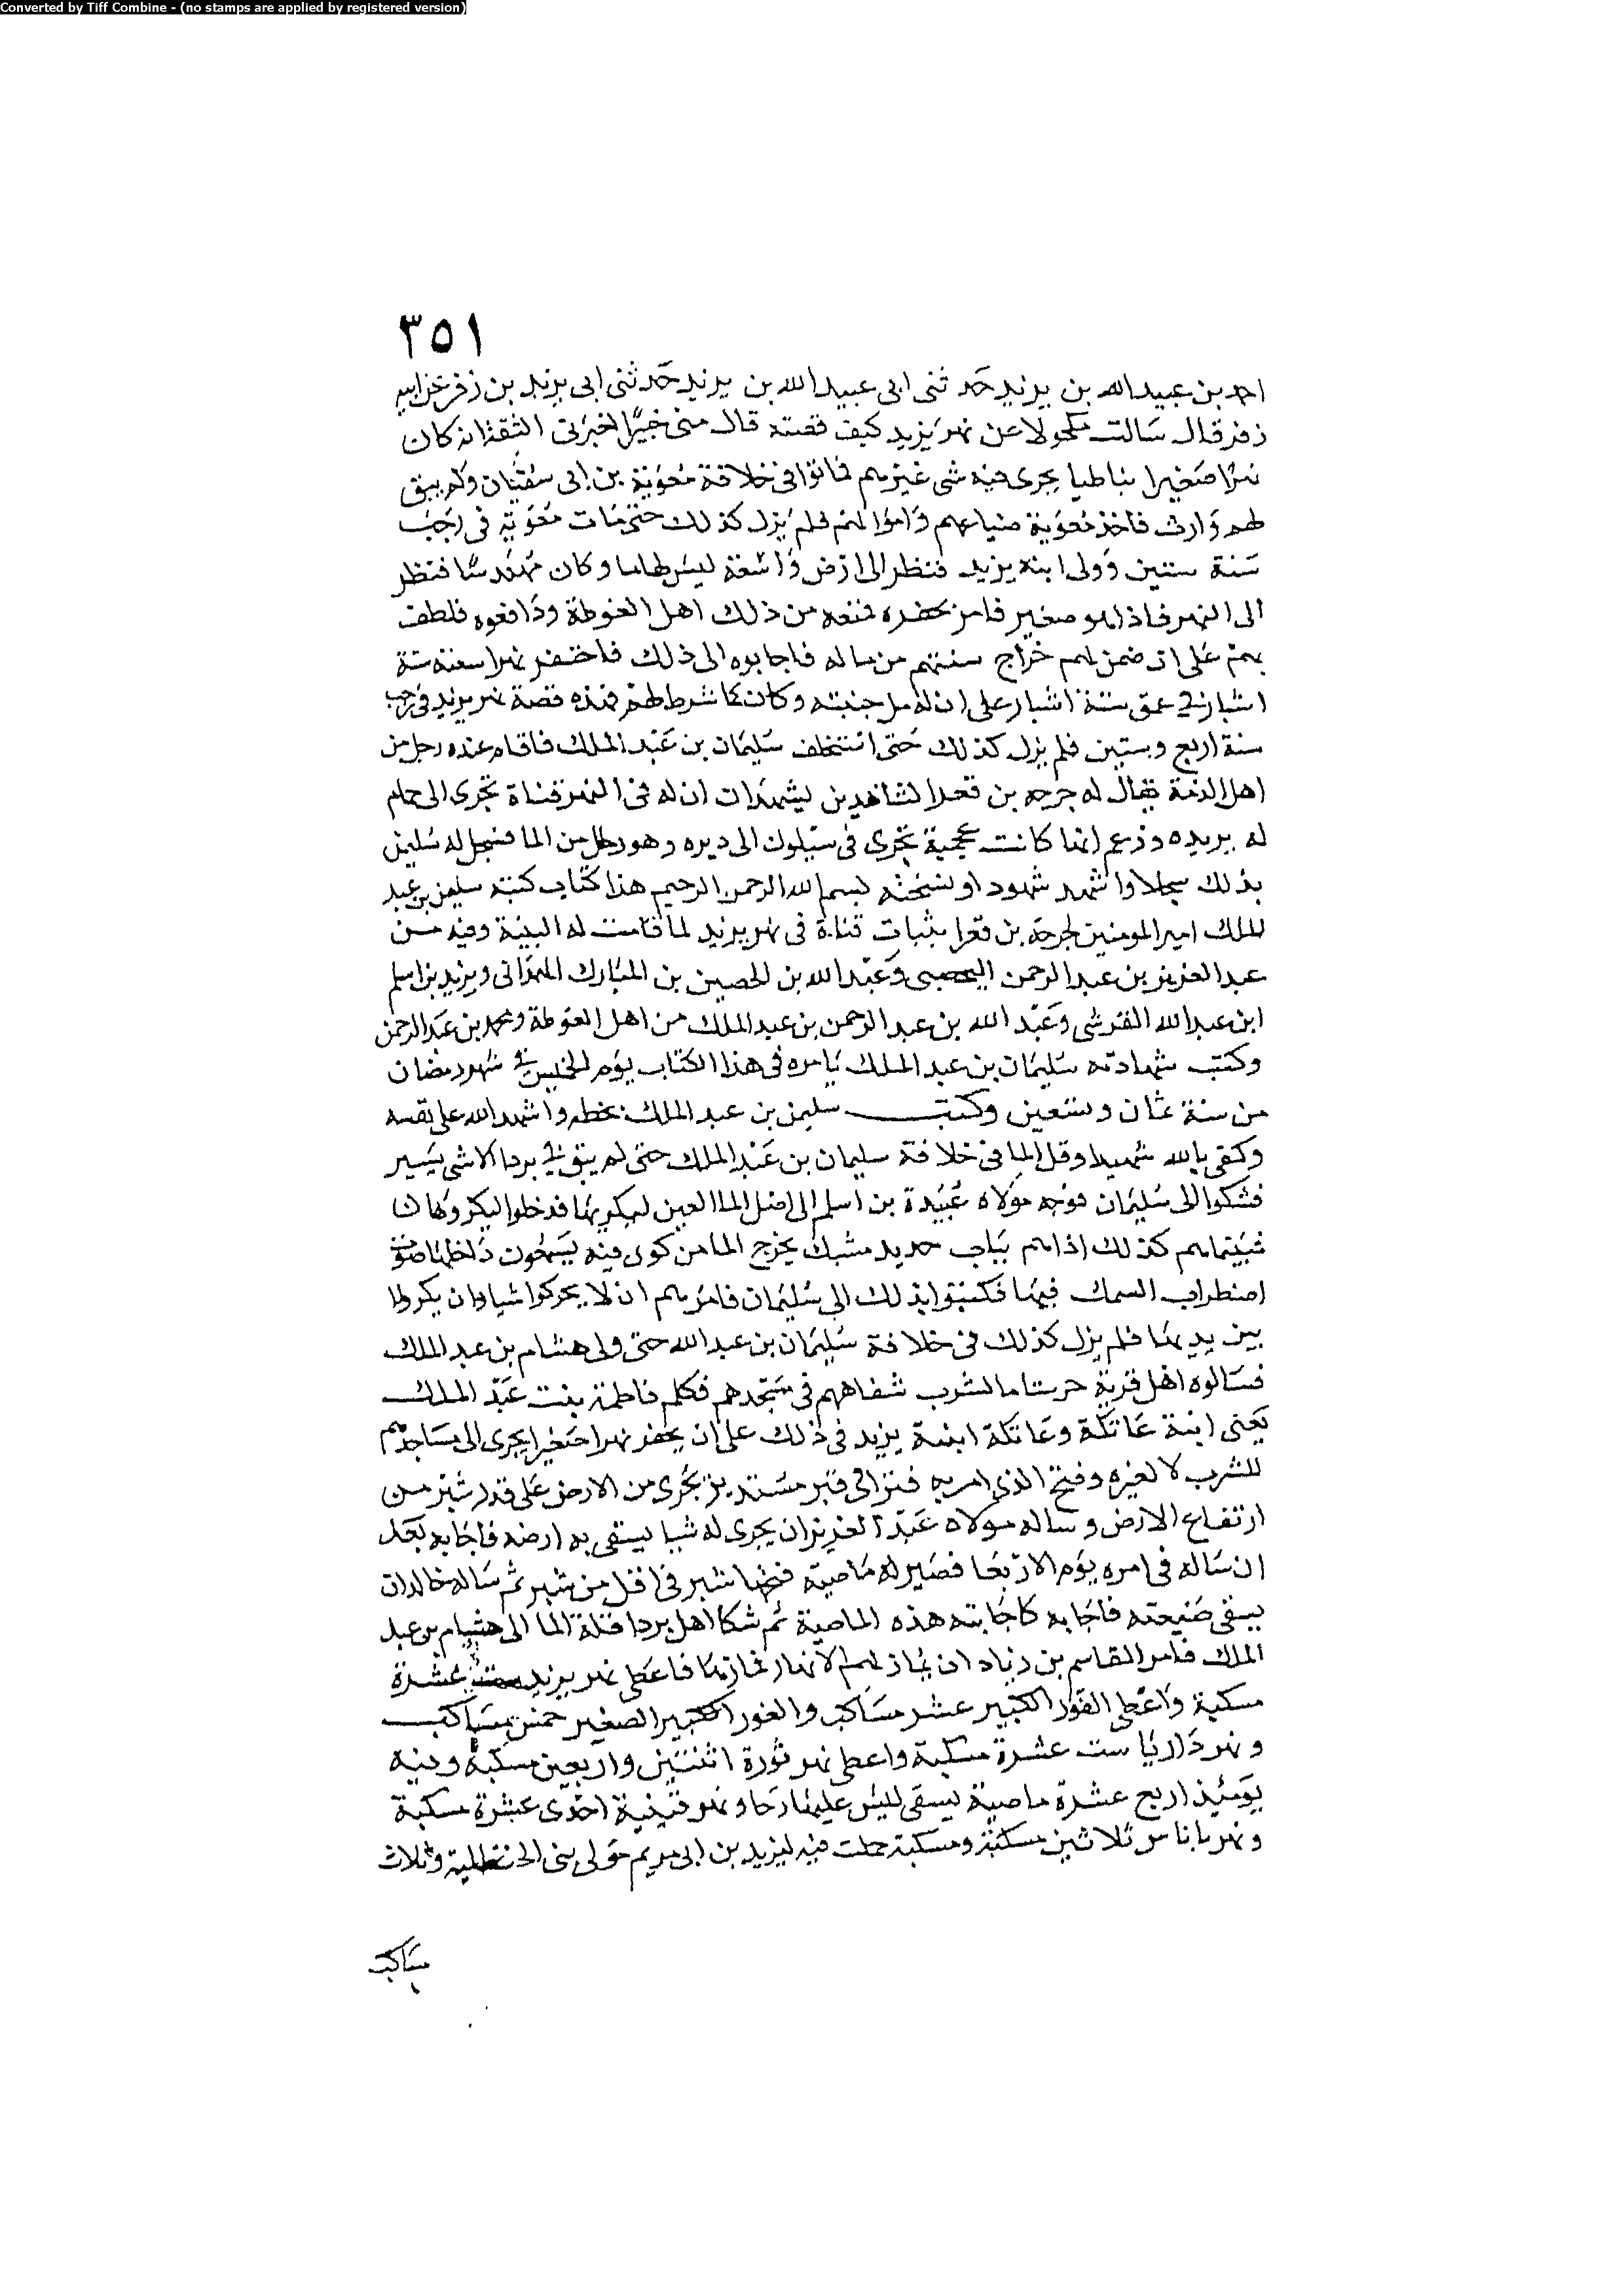 Converted by Tiff Combine - (no stamps are applied by registered version)
٣٥١
احمد بن عبيد الله بن يزيد حدثنى ابى عبيد الله بن يزيد حدثنى ابى يزيد بن زفر عن ابيه
زفر قال سالت مكحولا عن نهر يزيد كيف قصته قال منى خبيرًا اخبرنى الثقة انه كان
نهرًا صغيرا نباطيا يجرى فيه شى غيرهم فماتوا فى خلافة معوية بن ابى سفيان ولم يبق
لهم وارث فاخذ معوية ضياعهم واموالهم فلم يزل كذلك حتى مات معوية فى رجب
سنة ستين وولى ابنه يزيد فنظر الى ارض واسعة ليس لها ما وكان مهندسًا فنظر
الى النهر فاذا هو صغير فامر بحفره فمنعه من ذلك اهل الغوطة ودافعوه فلطف
بهم على ان ضمن لهم خراج سنتهم من ماله فاجابوه الى ذلك فاحتفر نهرا سعته ستة
اشبار فى عمق ستة اشبار على ان له مل جنبته وكان كما شرط لهم فهذه قصة نهر يزيد فى رجب
سنة اربع وستين فلم يزل كذلك حتى استخلف سليمان بن عبد الملك فاقام عنده رجل من
اهل الذمة يقال له جرجه بن قعرا لشاهدين ليشهدان ان له فى النهر قناة تجرى الى حمام
له بريده وزعم انها كانت عجمية تجرى فى سيلون الى ديره وهو رطل من الما فسجل له سليمن
بذلك سجلا واشهد شهود او نسخته بسم الله الرحمن الرحيم هذا كتاب كتبه سليمن بن عبد
الملك امير المومنين لجرجه بن قعرا بثبات قناة فى نهر يزيد لما قامت له البينة وفيه من
عبد العزيز بن عبد الرحمن اليحصبى وعبد الله بن الحصين بن المبارك الهمدانى ويزيد بن اسلم
ابن عبد الله القرشى وعبد الله بن عبد الرحمن بن عبد الملك من اهل الغوطة ومحمد بن عبد الرحمن
وكتب شهادته سليمان بن عبد الملك يامره فى هذا الكتاب يوم الخميس فى شهر رمضان
من سنة ثمان وتسعين وكتب سليمن بن عبد الملك بخطه واشهد الله على نفسه
وكفى بالله شهيدا وقل الما فى خلافة سليمان بن عبد الملك حتى لم يبق فى بردا الا شى يسير
فشكوا الى سليمان فوجه مولاه عبيدة بن اسلم الى اصل الما العين ليكريها فدخلوا ليكروها
فبيناهم كذلك اذا هم بباب حديد مشبك يخرج الما من كوى فيه يسمعون داخلها صوت
اضطراب السمك فيها فكتبوا بذلك الى سليمان فامرهم ان لا يحركوا شيا وان يكروا
بين يديها فلم يزل كذلك فى خلافة سليمان بن عبد الله حتى ولى هشام بن عبد الملك
فسالوه اهل قرية حرستا ما لشرب شفاههم فى مسجدهم فكلم فاطمة بنت عبد الملك
يعنى ابنة عاتكة وعاتكة ابنة يزيد فى ذلك على ان يحفر نهرا صغيرا يجرى الى مساجدهم
للشرب لا لغيره وفتح الذى امر به فتر فى قبر مستدير يجرى من الارض على قدر شبر من
ارتفاع الارض وساله مولاه عبد العزيز ان يجرى له شيا يسقى به ارضه فاجابه بعد
ان ساله فى امره يوم الاربعا فصير له ماصية فتحها شبر فى اقل من شبر ثم ساله خالد ان
يسقى ضيعته فاجابه كاجابته هذه الماصية ثم شكا اهل بردا قلة الما الى هشام بن عبد
الملك فامر القاسم بن زياد ان يماز لهم الانهار فمازها فاعطى نهر يزيد ست عشرة
مسكبة واعطى الفور الكبير عشر مساكب والفور الكبير الصغير خمس مساكب
ونهر داريا ست عشرة مسكبة واعطى نهر ثورة اثنتين واربعين مسكبة وفيه
يومئذ اربع عشرة ماصية يسقى ليس عليها رحا ونهر قينية احدى عشرة مسكبة
ونهر باناس ثلاثين مسكبة ومسكبة حملت فيه ليزيد بن ابى مريم مولى بنى الحنظلية وثلاث
مساكب